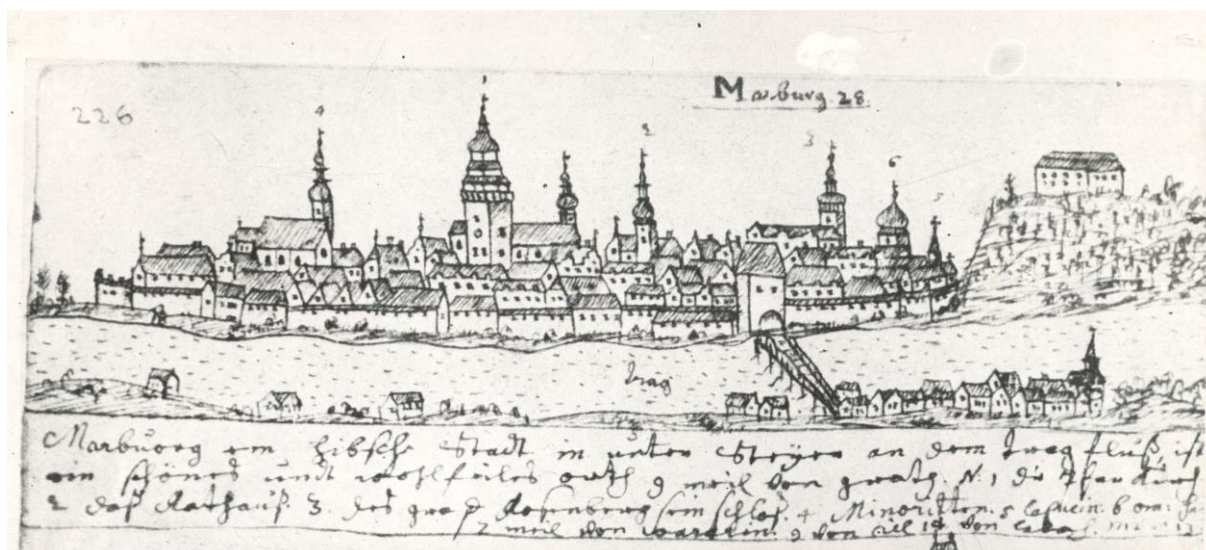 Marburg. 28.
226
4
1
2
3
6
5
trag
Marbuorg ein hibsche Stadt in unter Steyer an dem trag fluß ist
ein schönes undt wohlfeiles orth 9 meil von gratz. N. 1 die Pfar Kirch
2 daß Rathauß. 3. des graf Rosenberg sein schloß. 4 Minoritten. 5 Capucin. 6
2 meil von 9 von 19 von